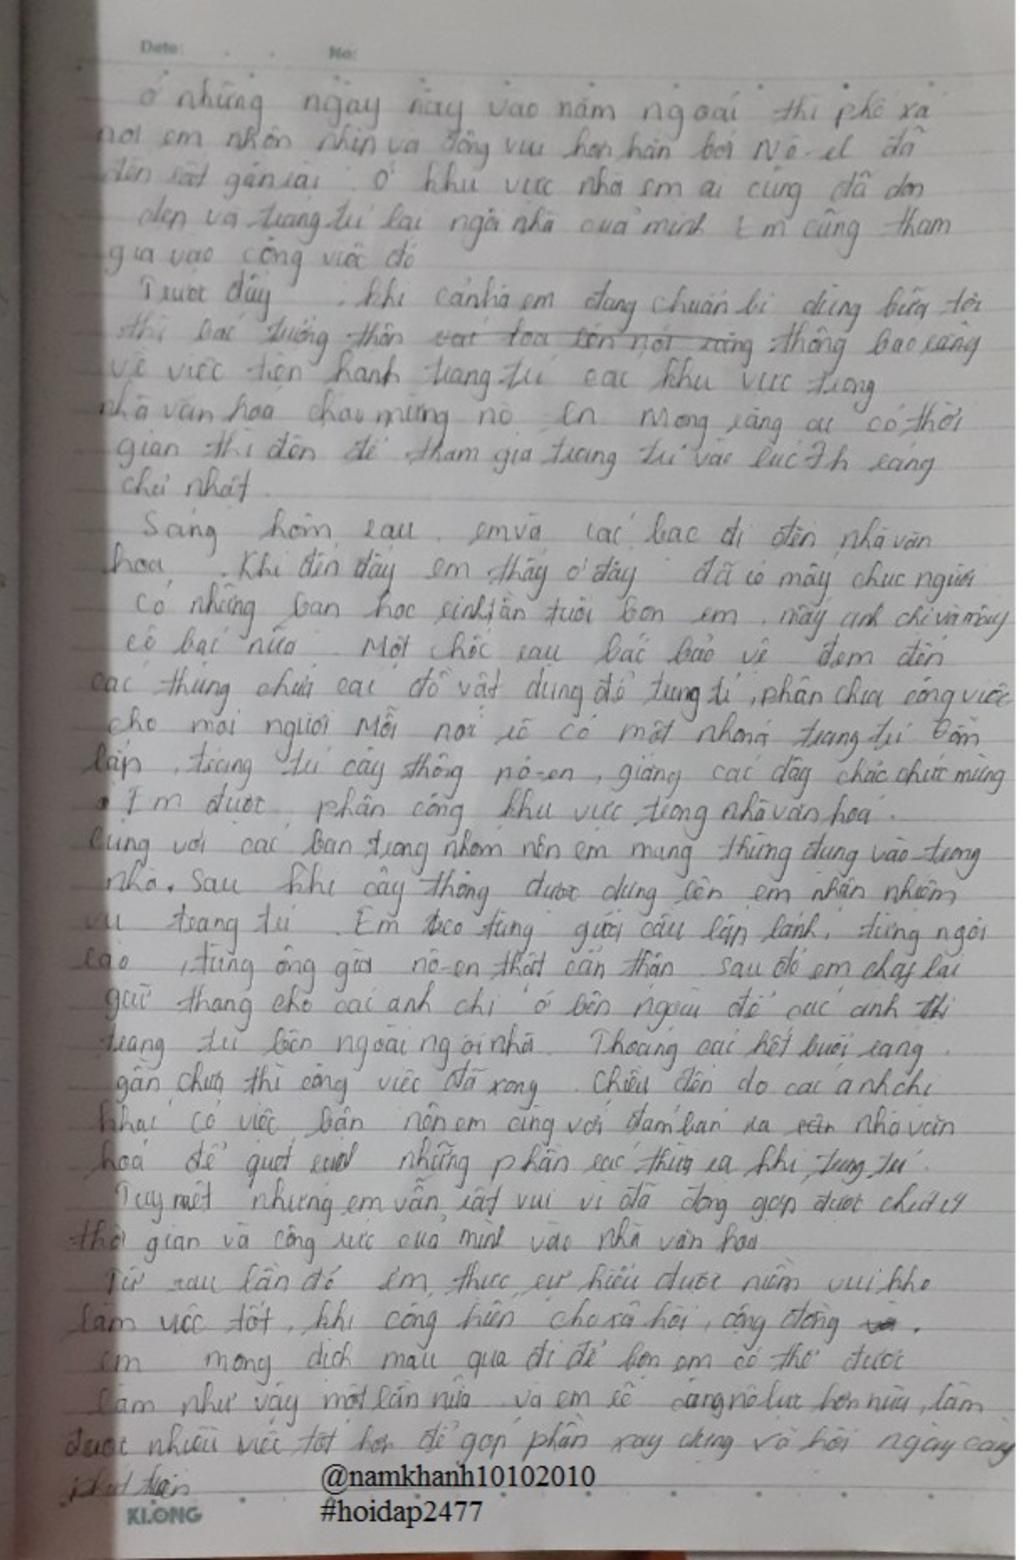 Date: No:
ở những ngày này vào năm ngoái thì phố xá
nơi em nhộn nhịp và đông vui hơn hẳn bởi Nô-el đã
đến rất gần rồi. Ở khu vực nhà em ai cũng đã dọn
dẹp và trang trí lại ngôi nhà của mình Em cũng tham
gia vào công việc đó
Trước đây khi cả nhà em đang chuẩn bị dùng bữa tối
thì bác trưởng thôn thông báo rằng
về việc tiến hành trang trí các khu vực trong
nhà văn hoá chào mừng nô en Mong rằng ai có thời
gian thì đến để tham gia trang trí vào lúc 7h sáng
chủ nhật.
Sáng hôm sau, em và các bác đi đến nhà văn
hoá. Khi đến đây em thấy ở đây đã có mấy chục người
có những bạn học sinh tần tuổi bọn em, mấy anh chị và mấy
cô bác nữa. Một chốc sau bác bảo vệ đem đến
các thùng chứa các đồ vật dùng để trang trí, phân chia công việc
cho mọi người Mỗi nơi sẽ có một nhóm trang trí
lắp, trang trí cây thông nô-en, giăng các dây chúc mừng
Em được phân công khu vực trong nhà văn hoá.
Cùng với các bạn trong nhóm nên em mang thùng đựng vào trong
nhà. Sau khi cây thông được dựng lên em nhận nhiệm
vụ trang trí. Em treo từng quả cầu lấp lánh, từng ngôi
sao, từng ông già nô-en thật cẩn thận sau đó em chạy lại
giữ thang cho các anh chị ở bên ngoài để các anh
trang trí bên ngoài ngôi nhà. Thoáng cái hết buổi sáng
gần trưa thì công việc đã xong. Chiều đến do các anh chị
khác có việc bận nên em cùng với đám bạn ra nhà văn
hoá để quét những phần rác thừa ra khi trang trí.
Tuy mệt nhưng em vẫn rất vui vì đã đóng góp được chút
thời gian và công sức của mình vào nhà văn hoá
Từ sau lần đó em thực sự hiểu được niềm vui khi
làm việc tốt, khi cống hiến cho xã hội, cộng đồng.
Em mong dịch mau qua đi để bọn em có thể được
làm như vậy một lần nữa và em sẽ càng nỗ lực hơn nữa, làm
được nhiều việc tốt hơn để góp phần xây dựng xã hội ngày càng
phát triển
@namkhanh10102010
#hoidap2477
KLONG